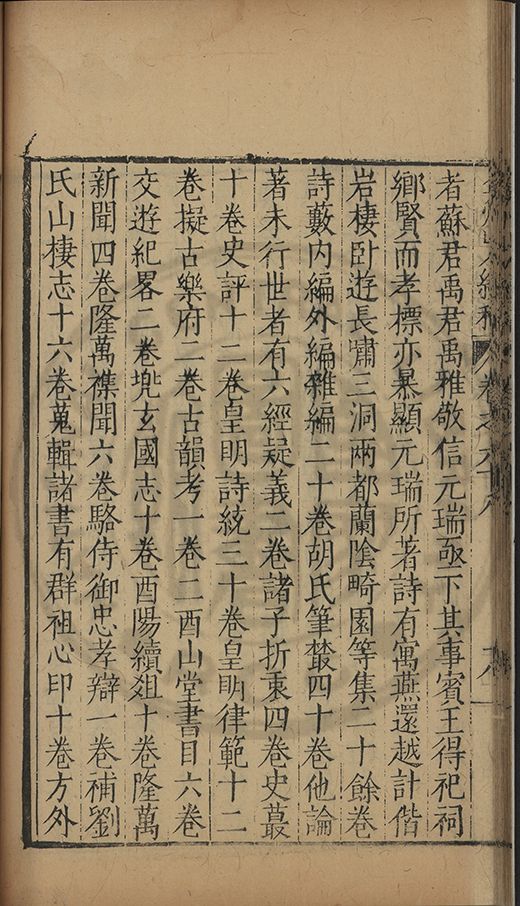 者蘇君禹君禹雅敬信元瑞亟下其事賓王得祀祠
鄉賢而孝標亦㬥顯元瑞所著詩有寓燕還越計偕
岩棲臥遊長嘯三洞兩都蘭陰畸園等集二十餘卷
詩藪內編外編雜編二十卷胡氏筆叢四十卷他論
著未行世者有六經疑義二卷諸子折衷四卷史蕞
十卷史評十二卷皇明詩統三十卷皇明律範十二
卷擬古樂府二卷古韻考一卷二酉山堂書目六卷
交遊紀畧二卷兠玄國志十卷酉陽續爼十卷隆萬
新聞四卷隆萬襍聞六卷駱侍御忠孝辯一卷補劉
氏山棲志十六卷蒐輯諸書有群祖心印十卷方外